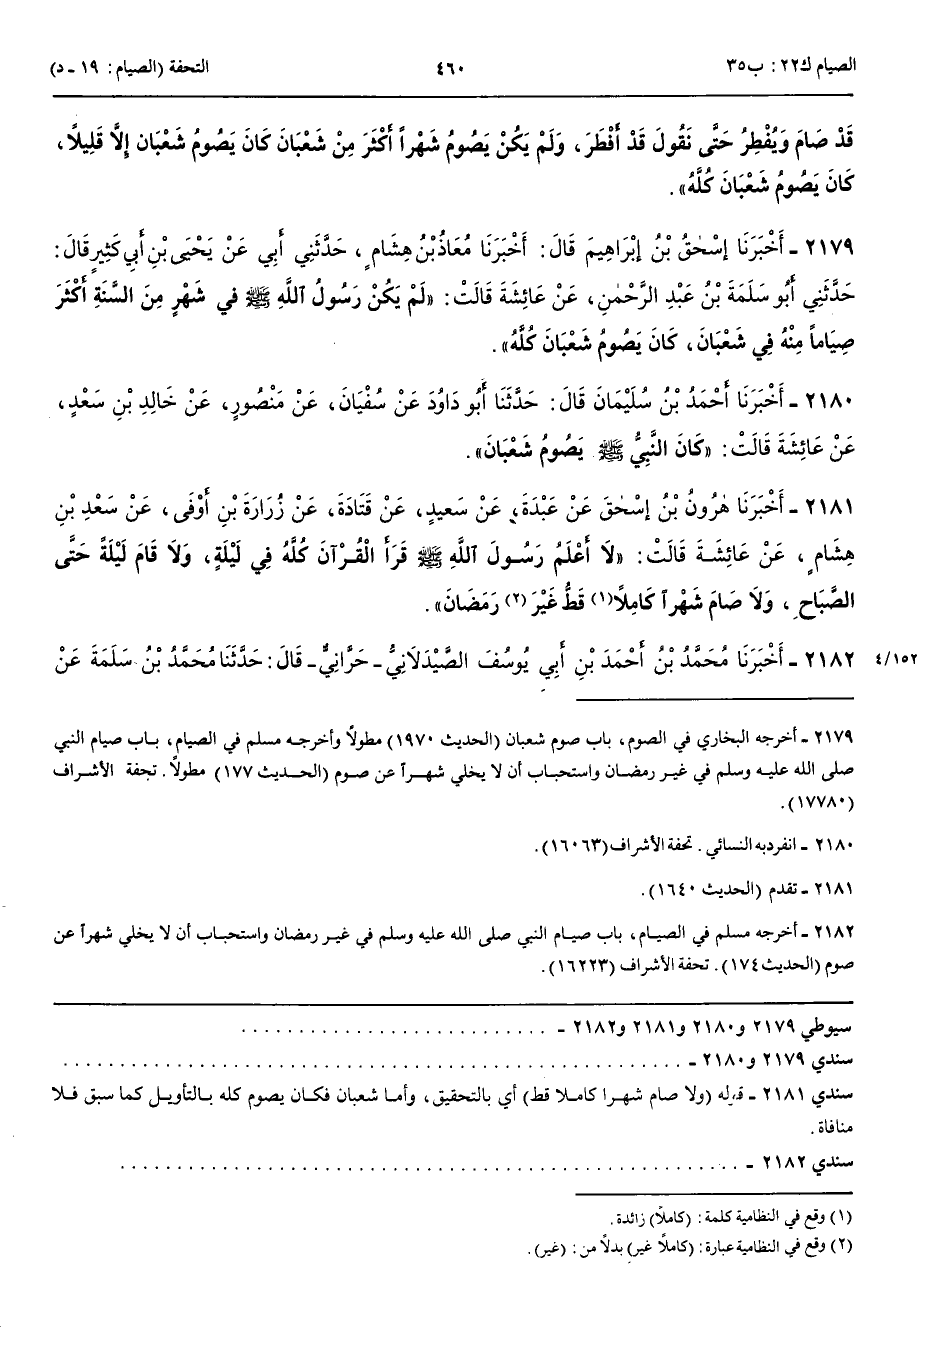 الصيام ك٢٢: ب٣٥
٤٦٠
التحفة (الصيام: ١٩ ـ د)
قَدْ صَامَ وَيُفْطِرُ حَتَّى نَقُولَ قَدْ أَفْطَرَ، وَلَمْ يَكُنْ يَصُومُ شَهْراً أَكْثَرَ مِنْ شَعْبَانَ كَانَ يَصُومُ شَعْبَانَ إِلَّا قَلِيلًا،
كَانَ يَصُومُ شَعْبَانَ كُلَّهُ».
٢١٧٩ ـ أَخْبَرَنَا إِسْحٰقُ بْنُ إِبْرَاهِيمَ قَالَ: أَخْبَرَنَا مُعَاذُ بْنُ هِشَامٍ، حَدَّثَنِي أَبِي عَنْ يَحْيَى بْنِ أَبِي كَثِيرٍ قَالَ:
حَدَّثَنِي أَبُو سَلَمَةَ بْنُ عَبْدِ الرَّحْمٰنِ، عَنْ عَائِشَةَ قَالَتْ: «لَمْ يَكُنْ رَسُولُ ٱللَّهِ ﷺ فِي شَهْرٍ مِنَ السَّنَةِ أَكْثَرَ
صِيَاماً مِنْهُ فِي شَعْبَانَ، كَانَ يَصُومُ شَعْبَانَ كُلَّهُ».
٢١٨٠ ـ أَخْبَرَنَا أَحْمَدُ بْنُ سُلَيْمَانَ قَالَ: حَدَّثَنَا أَبُو دَاوُدَ عَنْ سُفْيَانَ، عَنْ مَنْصُورٍ، عَنْ خَالِدِ بْنِ سَعْدٍ،
عَنْ عَائِشَةَ قَالَتْ: «كَانَ النَّبِيُّ ﷺ يَصُومُ شَعْبَانَ».
٢١٨١ ـ أَخْبَرَنَا هٰرُونُ بْنُ إِسْحٰقَ عَنْ عَبْدَةَ، عَنْ سَعِيدٍ، عَنْ قَتَادَةَ، عَنْ زُرَارَةَ بْنِ أَوْفَى، عَنْ سَعْدِ بْنِ
هِشَامٍ، عَنْ عَائِشَةَ قَالَتْ: «لَا أَعْلَمُ رَسُولَ ٱللَّهِ ﷺ قَرَأَ الْقُرْآنَ كُلَّهُ فِي لَيْلَةٍ، وَلَا قَامَ لَيْلَةً حَتَّى
الصَّبَاحِ، وَلَا صَامَ شَهْراً كَامِلًا(١) قَطُّ غَيْرَ (٢) رَمَضَانَ».
٢١٨٢ ـ أَخْبَرَنَا مُحَمَّدُ بْنُ أَحْمَدَ بْنِ أَبِي يُوسُفَ الصَّيْدَلَانِيُّ ـ حَرَّانِيٌّ ـ قَالَ: حَدَّثَنَا مُحَمَّدُ بْنُ سَلَمَةَ عَنْ
٤/١٥٢
٢١٧٩ ـ أخرجه البخاري في الصوم، باب صوم شعبان (الحديث ١٩٧٠) مطولًا وأخرجه مسلم في الصيام، باب صيام النبي
صلى الله عليه وسلم في غير رمضان واستحباب أن لا يخلي شهراً عن صوم (الحديث ١٧٧) مطولًا. تحفة الأشراف
(١٧٧٨٠).
٢١٨٠ ـ انفرد به النسائي. تحفة الأشراف (١٦٠٦٣).
٢١٨١ ـ تقدم (الحديث ١٦٤٠).
٢١٨٢ ـ أخرجه مسلم في الصيام، باب صيام النبي صلى الله عليه وسلم في غير رمضان واستحباب أن لا يخلي شهراً عن
صوم (الحديث ١٧٤). تحفة الأشراف (١٦٢٢٣).
سيوطي ٢١٧٩ و٢١٨٠ و٢١٨١ و٢١٨٢ ـ ............................
سندي ٢١٧٩ و٢١٨٠ ـ ........................................................
سندي ٢١٨١ ـ قوله (ولا صام شهرا كاملا قط) أي بالتحقيق، وأما شعبان فكان يصوم كله بالتأويل كما سبق فلا
منافاة.
سندي ٢١٨٢ ـ ........................................................
(١) وقع في النظامية كلمة: (كاملًا) زائدة.
(٢) وقع في النظامية عبارة: (كاملًا غير) بدلًا من: (غير).